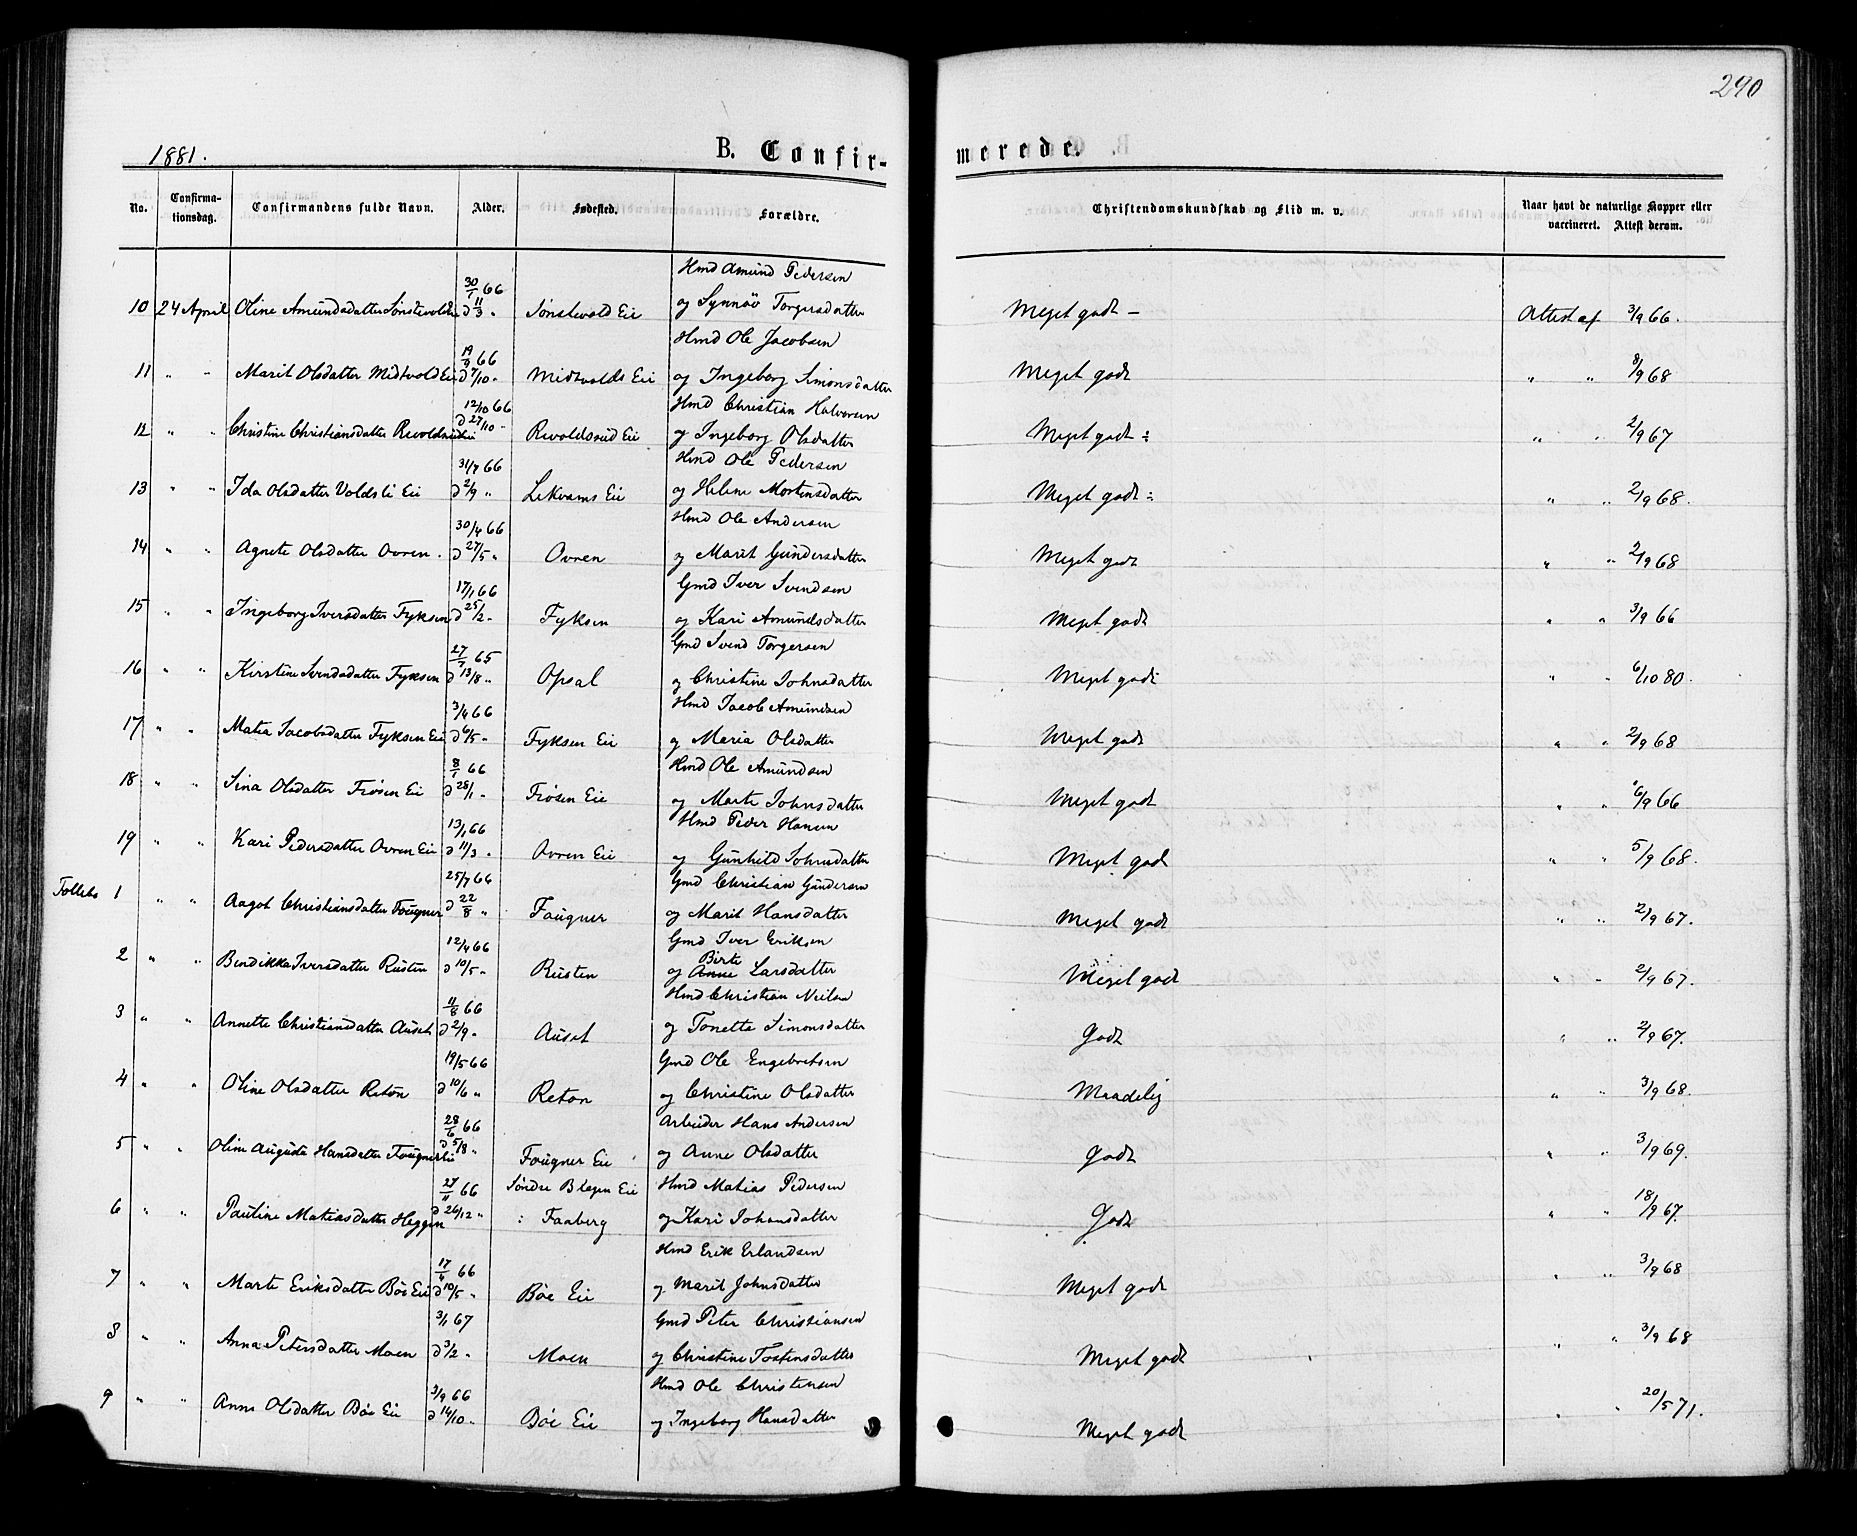 290
1881.
B. Confir-
merede.
No.
Confirma-
tionsdag.
Confirmandens fulde Navn.
Alder.
Fødested.
Forældre.
Christendomskundskab og Flid m. v.
Naar havt de naturlige Kopper eller
vaccineret. Attest derom.
30/1 66 Hmd Amund Pedersen
10 24 April Oline Amundsdatter Sønstevoldei d 11/3 " Sønstevold Eie og Synnøv Torgersdatter Meget godt – Attest af 3/9 66.
19/9 66 Hmd Ole Jacobsen
11 " " Marit Olsdatter Midtvold Eie d 7/10 " Midtvolds Eie og Ingeborg Simonsdatter Meget godt " " 8/9 68
12/10 66 Hmd Christian Halvorsen
12 " " Christine Christiansdatter d 27/10 " Revoldsrud Eie og Ingeborg Olsdatter Meget godt ÷ " " 2/9 67
31/7 66 Hmd Ole Pedersen
13 " " Ida Olsdatter Voldsli Eie d 2/9 " Lekvams Eie og Helene Mortensdatter Meget godt ÷ " " 2/9 68.
30/4 66 Hmd Ole Andersen
14 " " Agnete Olsdatter Ovren. d 27/5 " Ovren og Marit Gundersdatter Meget godt " " 2/9 68
17/1 66 Gmd Iver Svendsen
15 " " Ingeborg Iversdatter Fyksen d 25/2 " Fyksen og Kari Amundsdatter Meget godt " " 3/9 66
27/7 65 Gmd Svend Torgersen
16 " " Kirstine Svendsdatter Fyksen d 13/8 " Opsal og Christine Johnsdatter Meget godt " " 6/10 80.
3/4 66 Hmd Jacob Amundsen
17 " " Matea Jacobsdatter Fyksen Eie d 6/5 " Fyksen Eie og Maria Olsdatter Meget godt " " 2/9 68
8/1 66 Hmd Ole Amundsen
18 " " Sina Olsdatter Frøsen Eie d 28/1 " Frøsen Eie og Marte Johnsdatter Meget godt " " 6/9 66
13/1 66 Hmd Peder Hansen
19 " " Kari Pedersdatter Ovren Eie d 11/3 " Ovren Eie og Gunhild Johnsdatter Meget godt " " 5/9 68.
25/7 66 Gmd Christian Gundersen
1 " " Aagot Christiansdatter Fougner d 22/8 " Fougner og Marit Hansdatter Meget godt " " 2/9 67.
12/4 66 Gmd Iver Eriksen
2 " " Bendikka Iversdatter Rusten d 10/5 " Rusten og Anne Birte Larsdatter Meget godt " " 2/9 67.
11/8 66 Hmd Christian Nielsen
3 " " Annette Christiansdatter Auset d 2/9 " Auset og Tonette Simonsdatter Godt " " 2/9 67.
19/5 66 Gmd Ole Engebretsen
4 " " Oline Olsdatter Reton d 10/6 " Reton og Christine Olsdatter Maadelig " " 3/9 68.
28/6 66 Arbeider Hans Andersen
5 " " Oline Auguste Hansdatter Fougner Eie d 5/8 " Fougner Eie og Anne Olsdatter Godt " " 3/9 69.
27/11 66 Søndre Eie Hmd Matias Pedersen
6 " " Pauline Matiasdatter Heggen d 26/12 " : Faaberg og Kari Johansdatter Godt " " 18/9 67.
17/4 66 Hmd Erik Erlandsen
7 " " Marte Eriksdatter Bøe Eie d 10/5 " Bøe Eie og Marit Johnsdatter Meget godt " " 3/9 68
3/1 67 Gmd Peter Christiansen
8 " " Anna Petersdatter Moen d 3/2 " Moen og Christine Tostensdatter Meget godt " " 3/9 68
3/9 66 Hmd Ole Christensen
9 " " Anne Olsdatter Bøe Eie d 14/10 " Bøe Eie og Ingeborg Hansdatter Meget godt " " 20/5 71.